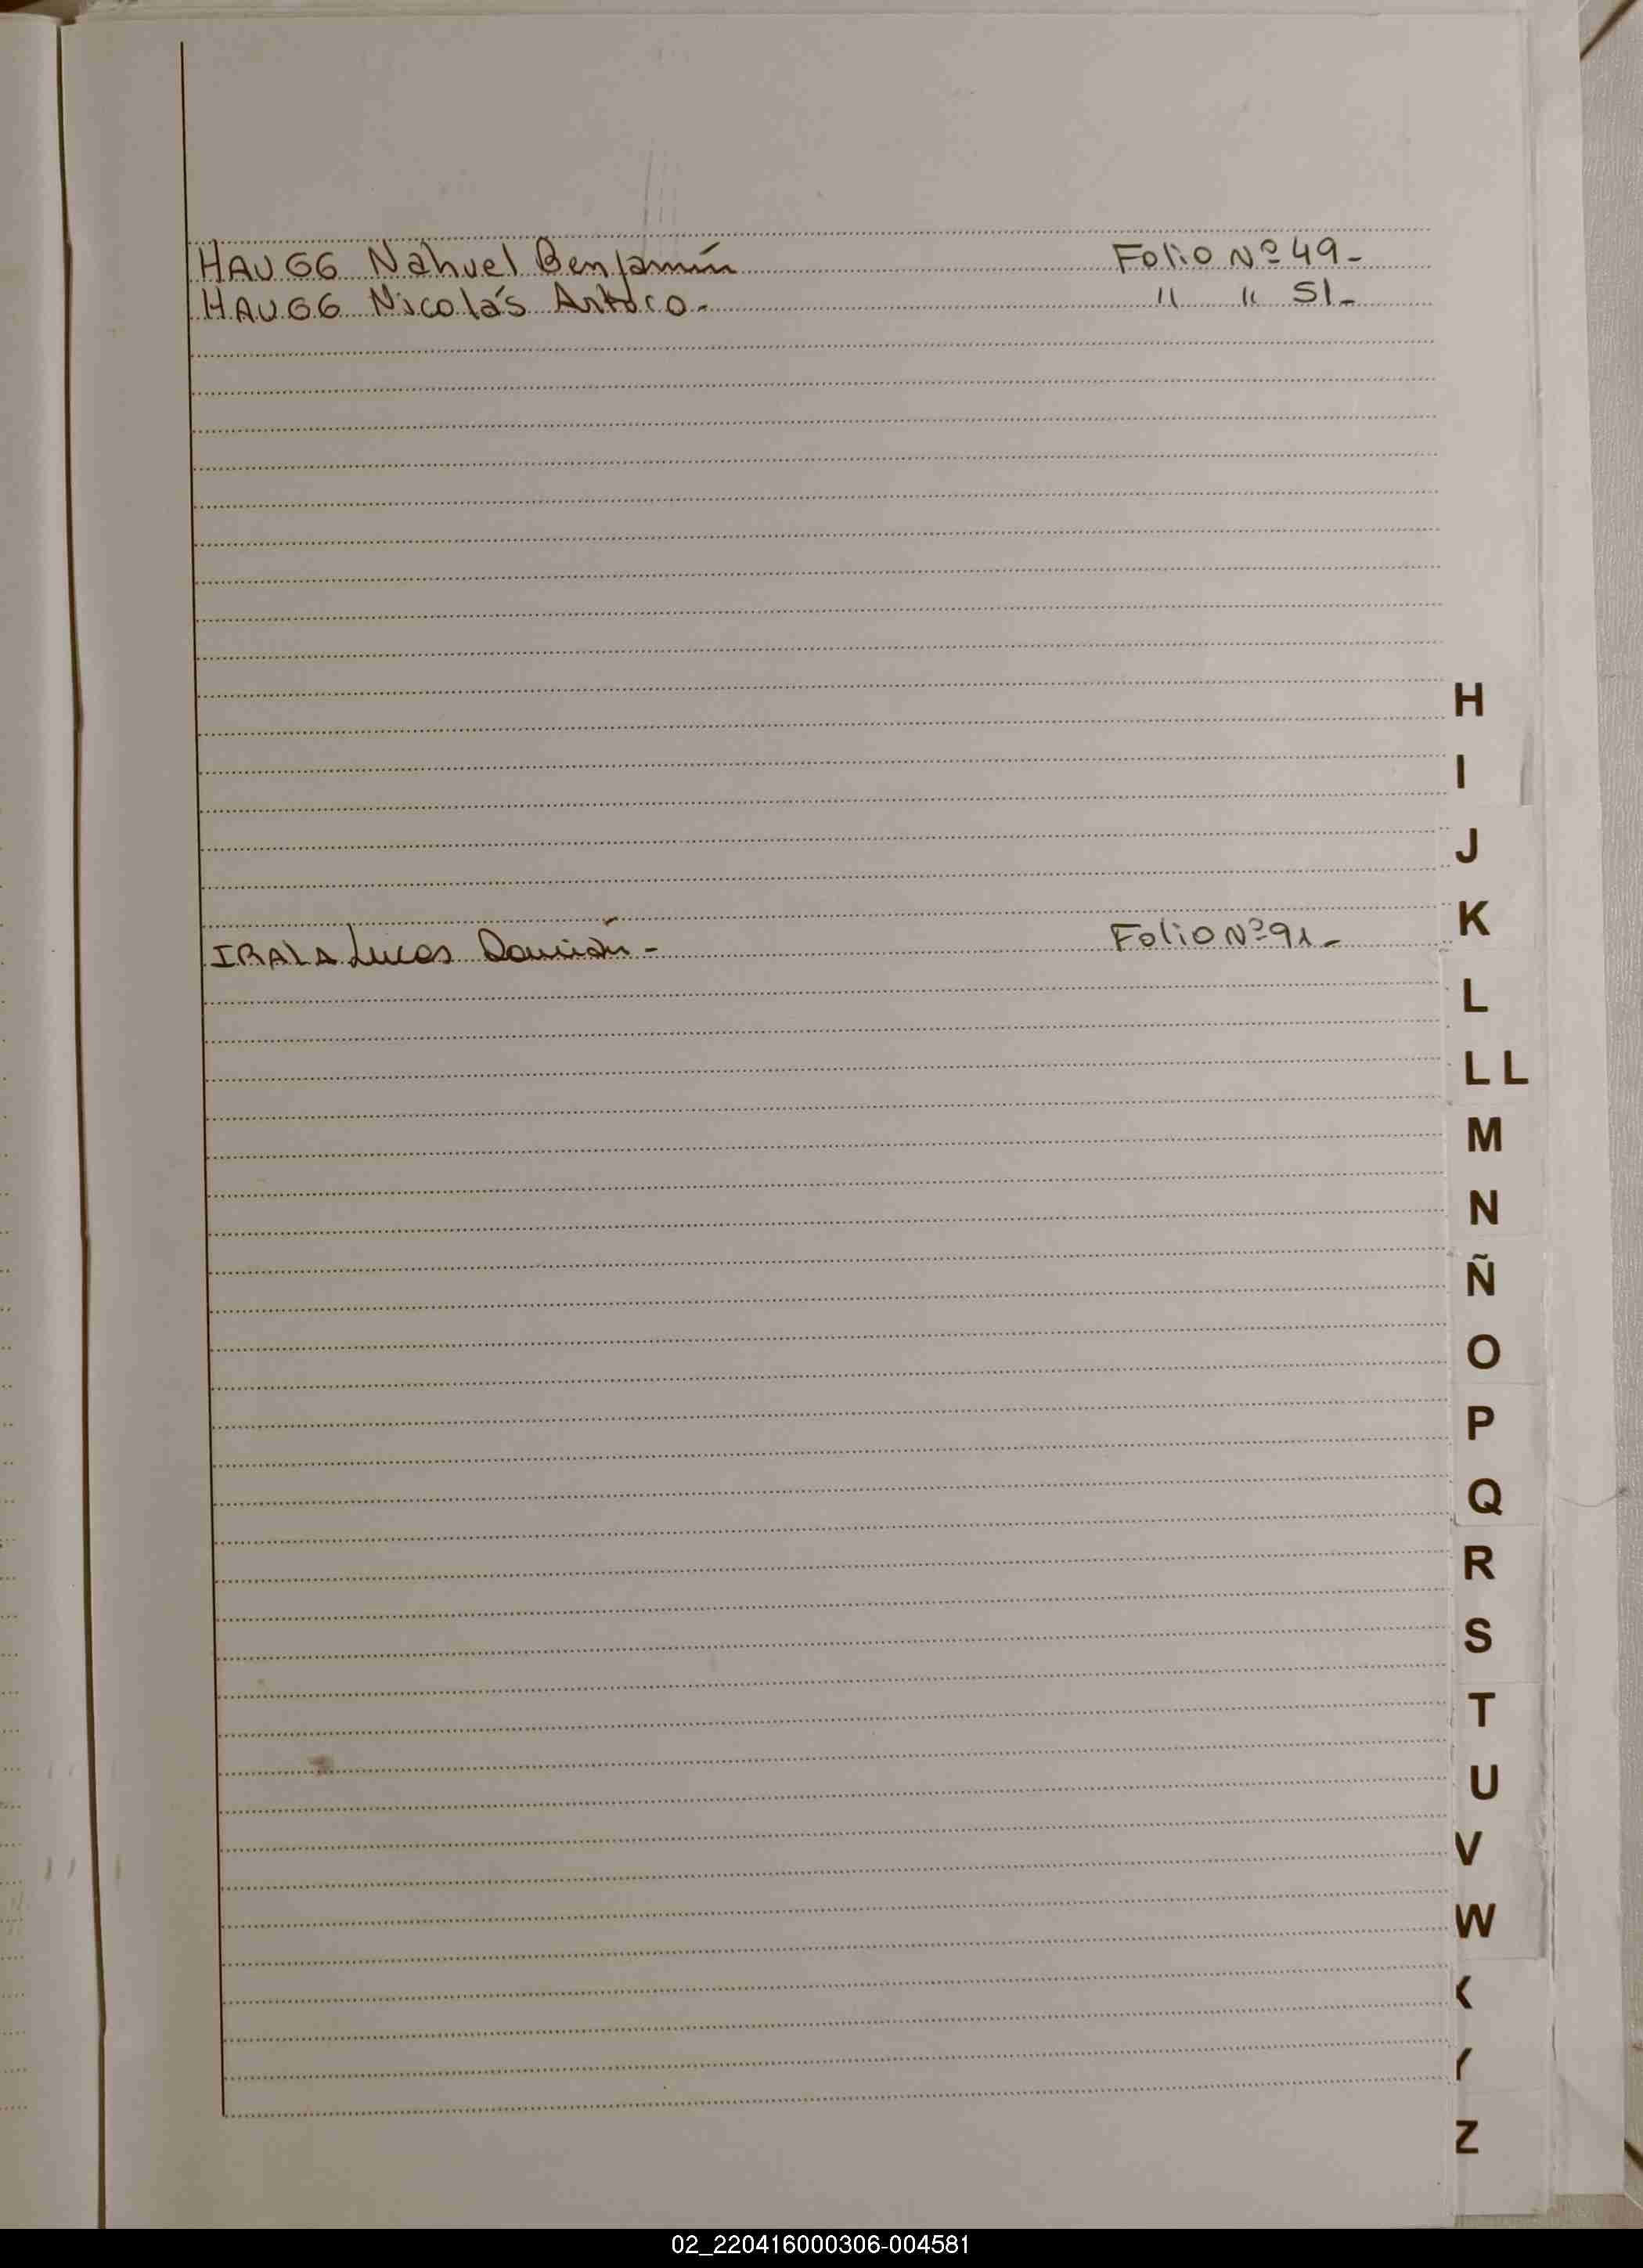 HAUGG Nahuel Benjamín Folio Nº 49-
HAUGG Nicolás Arturo- " " 51-
H
I
J
K
IRALA Lucas Damián- Folio Nº 91-
L
LL
M
N
Ñ
O
P
Q
R
S
T
U
V
W
X
Y
Z
02_220416000306-004581